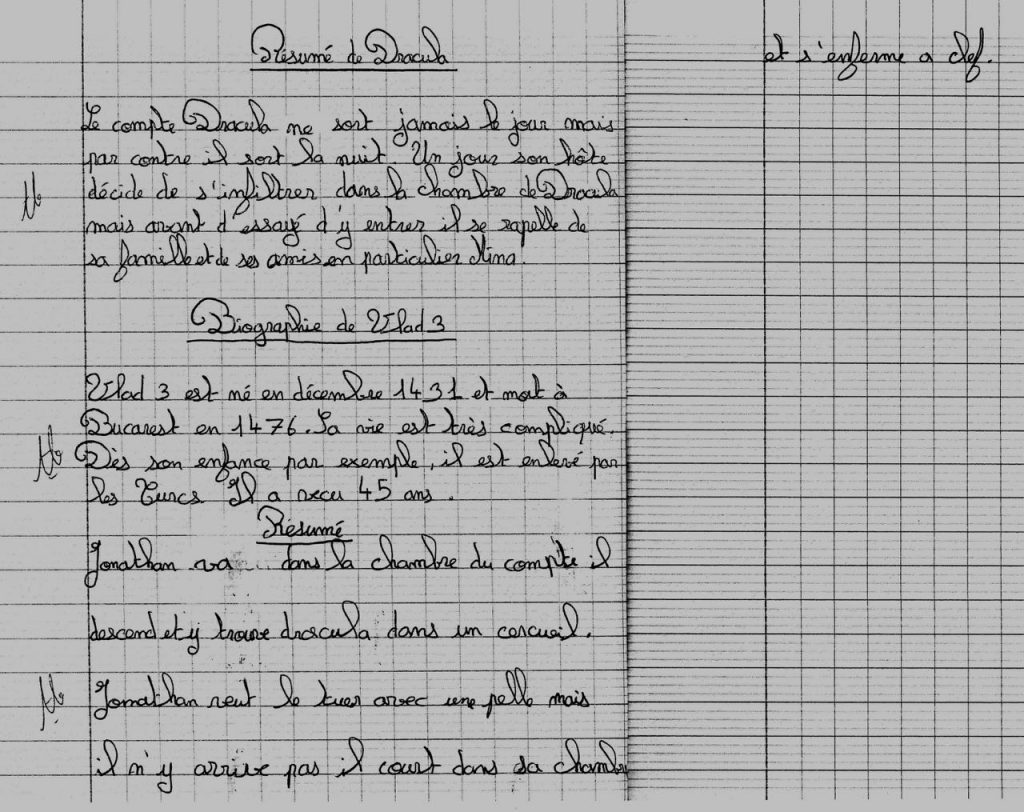 Résumé de Dracula
Le compte Dracula ne sort jamais le jour mais
par contre il sort la nuit. Un jour son hôte
décide de s'infiltrer dans la chambre de Dracula
mais avant d'essayé d'y entrer il se rapelle de
sa famille et de ses amis en particulier Mina.
Biographie de Vlad 3
Vlad 3 est né en décembre 1431 et mort à
Bucarest en 1476. Sa vie est très compliqué.
Dès son enfance par exemple, il est enlevé par
les Turcs. Il a vecu 45 ans.
Résumé
Jonathan va dans la chambre du compte il
descend et y trouve dracula dans un cercueil.
Jonathan veut le tuer avec une pelle mais
il n'y arrive pas il court dans sa chambre
et s'enferme a clef.